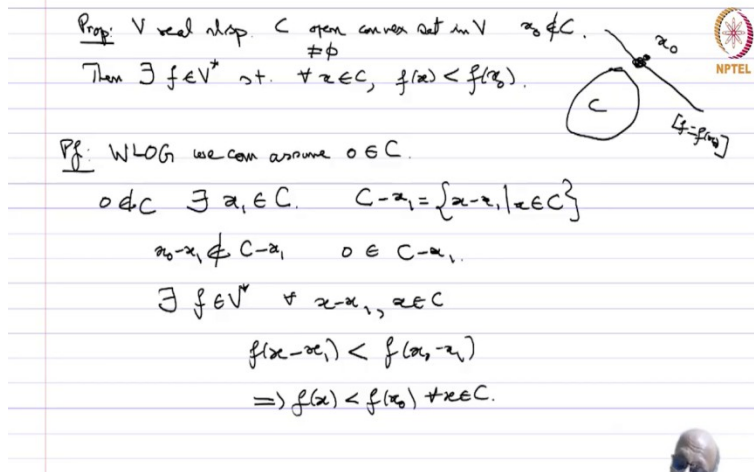 Prop: V real nlsp. C open convex set in V x₀ ∉ C.
≠ ϕ
Then ∃ f ∈ V* s.t. ∀ x ∈ C, f(x) < f(x₀).
x₀
C
[f = f(x₀)]
NPTEL
Pf: WLOG we can assume 0 ∈ C.
0 ∉ C ∃ x₁ ∈ C. C-x₁ = {x-x₁ | x ∈ C}
x₀-x₁ ∉ C-x₁ 0 ∈ C-x₁.
∃ f ∈ V* ∀ x-x₁, x ∈ C
f(x-x₁) < f(x₀-x₁)
⇒ f(x) < f(x₀) ∀ x ∈ C.